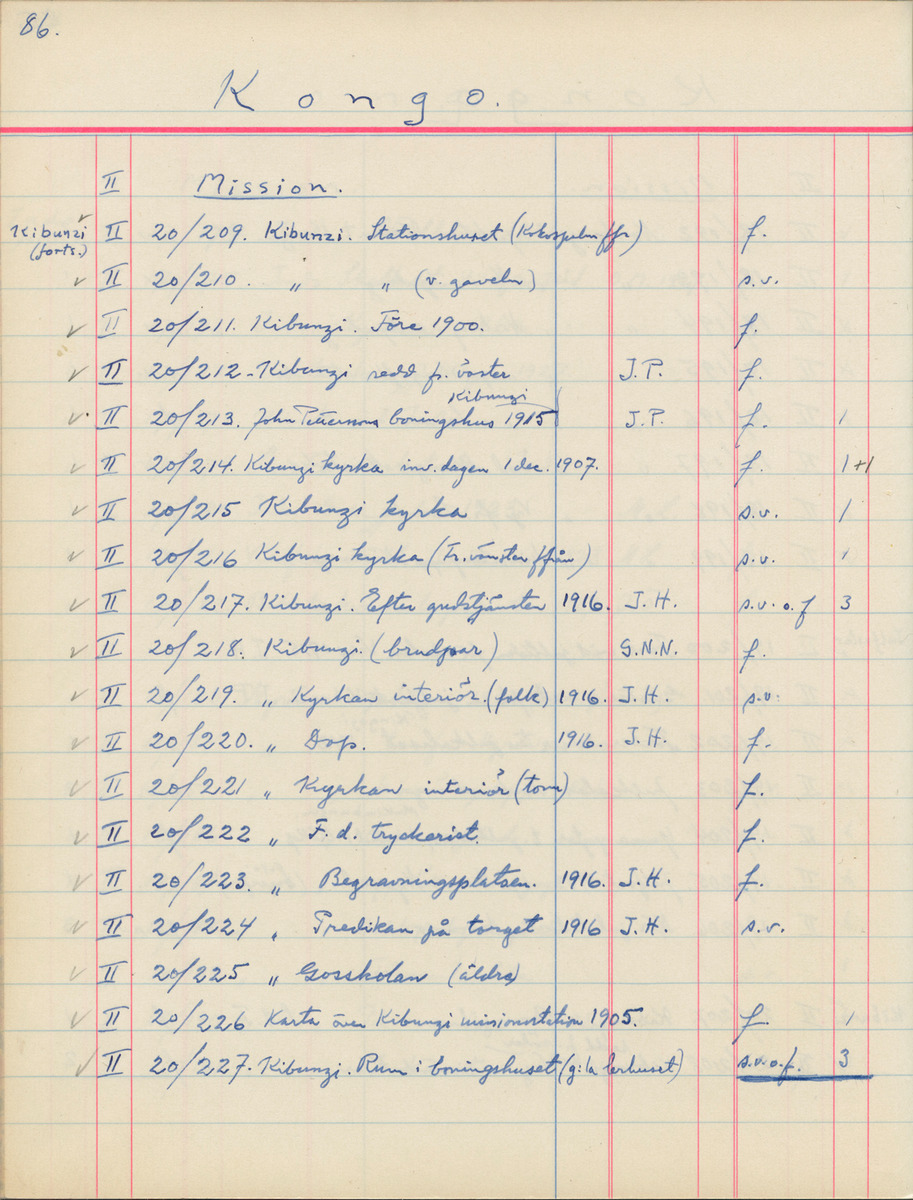 86.
Kongo.
II Mission.
✓
Kibunzi II 20/209. Kibunzi. Stationshuset (Kokospalm ffr) f.
(forts.)
✓ II 20/210. " " (v. gaveln) s.v.
✓ II 20/211. Kibunzi. Före 1900. f.
✓ II 20/212. Kibunzi sedd fr. öster J.P. f.
Kibunzi
✓ II 20/213. John Petterssons boningshus 1915 J.P. f. 1
✓ II 20/214. Kibunzi kyrka inv. dagen 1 dec. 1907. f. 1+1
✓ II 20/215 Kibunzi kyrka s.v. 1
✓ II 20/216 Kibunzi kyrka (Tr. vänster ifrån) s.v. 1
✓ II 20/217. Kibunzi. Efter gudstjänsten 1916. J.H. s.v.o.f 3
✓ II 20/218. Kibunzi. (brudpar) G.N.N. f.
✓ II 20/219. " Kyrkan interiör. (folk) 1916. J.H. s.v.
✓ II 20/220. " Dop. 1916. J.H. f.
✓ II 20/221 " Kyrkan interiör (tom) f.
✓ II 20/222 " F.d. tryckeriet. f.
✓ II 20/223. " Begravningsplatsen. 1916. J.H. f.
✓ II 20/224 " Predikan på torget 1916 J.H. s.v.
✓ II 20/225 " Gosskolan (äldra)
✓ II 20/226 Karta över Kibunzi missionsstation 1905. f. 1
✓ II 20/227. Kibunzi. Rum i boningshuset (g:la lerhuset) s.v.o.f. 3